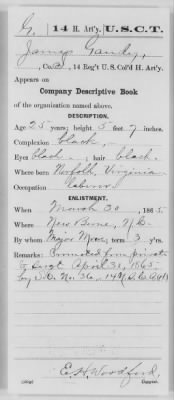 G. 14 H. Art'y. U.S.C.T.
James Gandy,
, Co. B, 14 Reg't U.S. Col'd H. Art'y.
Appears on
Company Descriptive Book
of the organization named above.
DESCRIPTION.
Age 25 years; height 5 feet 7 inches.
Complexion black
Eyes black; hair black.
Where born Norfolk, Virginia
Occupation laborer
ENLISTMENT.
When March 30, 1865.
Where New Berne, N.C.
By whom Major; term 3 yrs.
Remarks: Promoted from private
to Sergt April 31, 1865.
by S.O. No. 36
E. H. Woodford
Copyist.